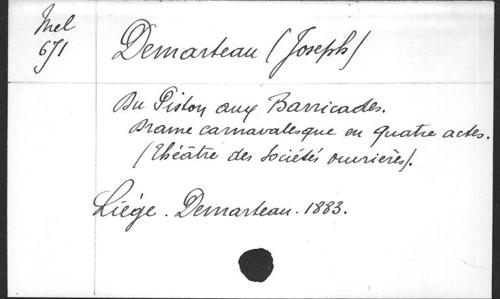 Mel
671
Demarteau (Joseph)
Du Piston aux Barricades.
Drame carnavalesque en quatre actes.
(Théâtre des Sociétés ouvrières).
Liége. Demarteau. 1883.